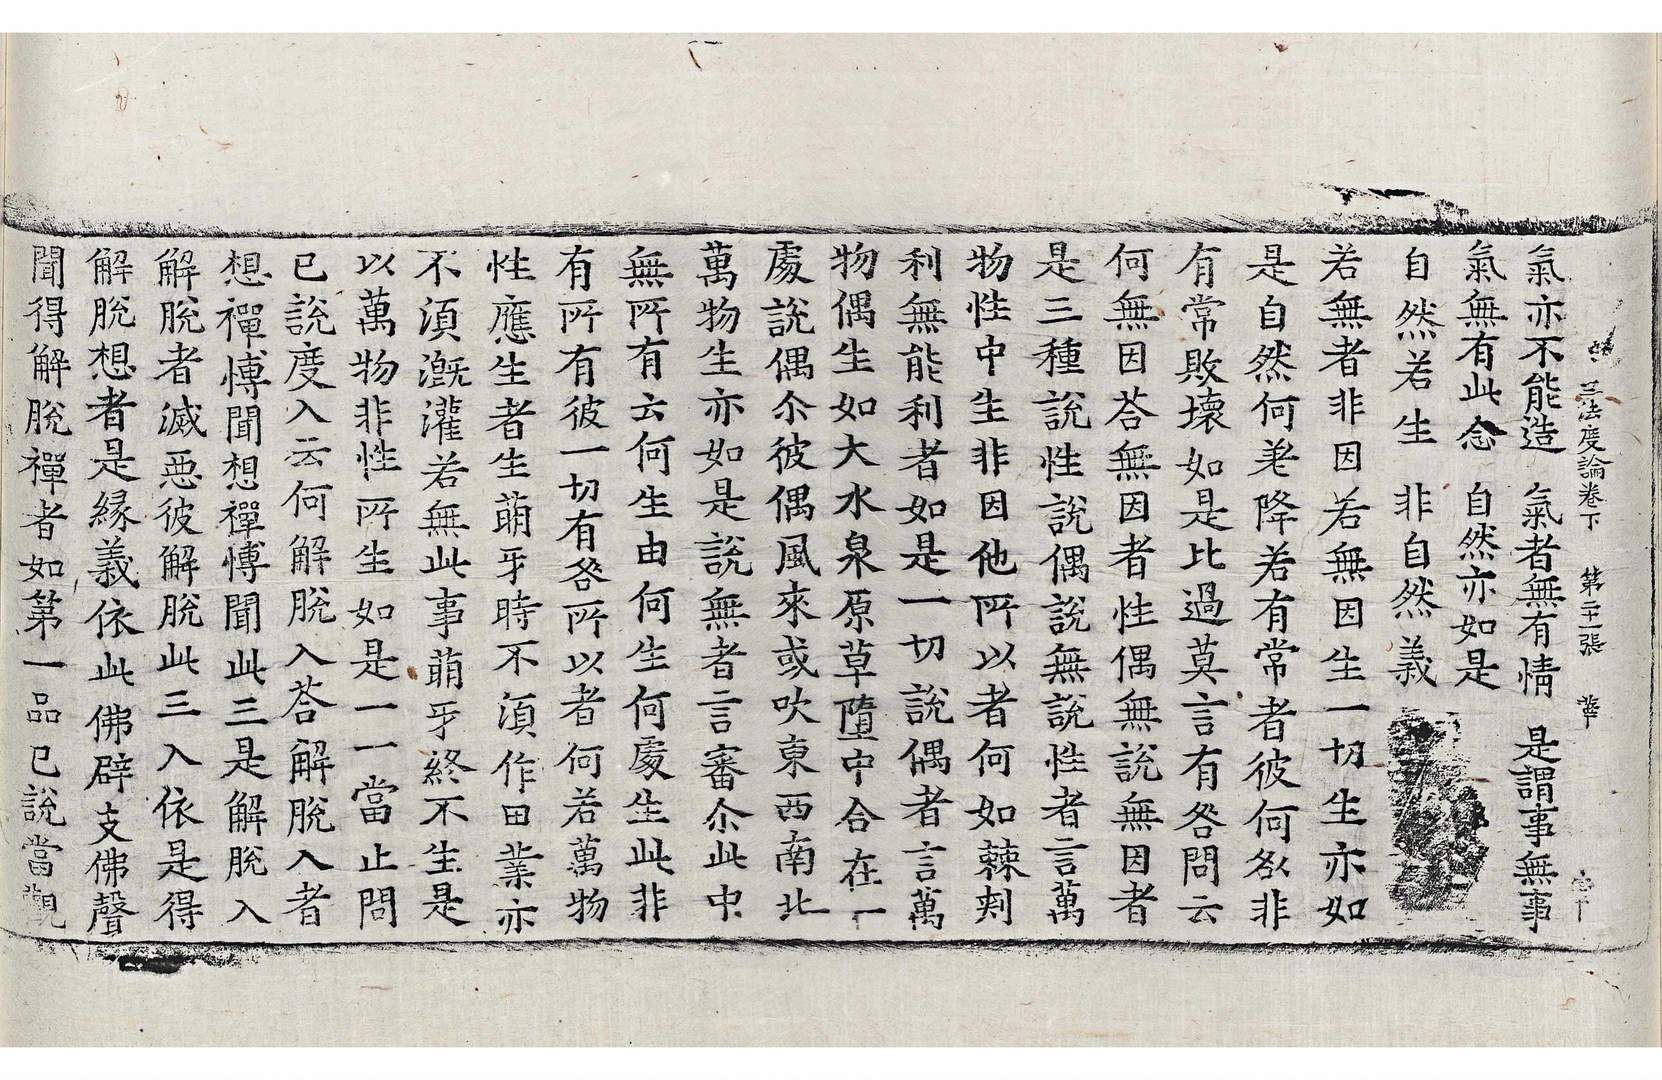 三法度論卷下 第二十一張 華
氣亦不能造 氣者無有情 是謂事無事
氣無有此念 自然亦如是
自然若生 非自然義
若無者非因若無因生一切生亦如
是自然何羙降若有常者彼何欲非
有常敗壞如是比過莫言有咎問云
何無因荅無因者性偶無說無因者
是三種說性說偶說無說性者言萬
物性中生非因他所以者何如棘刺
利無能利者如是一切說偶者言萬
物偶生如大水泉原草墮中合在一
處說偶尒彼偶風來或吹東西南北
萬物生亦如是說無者言審尒此中
無所有云何生由何生何處生此非
有所有彼一切有咎所以者何若萬物
性應生者生萠牙時不湏作田業亦
不湏溉灌若無此事萠牙終不生是
以萬物非性所生如是一一當止問
已說度入云何解脫入荅解脫入者
想禪愽聞想禪愽聞此三是解脫入
解脫者滅惡彼解脫此三入依是得
解脫想者是緣義依此佛辟支佛聲
聞得解脫禪者如第一品已說當觀